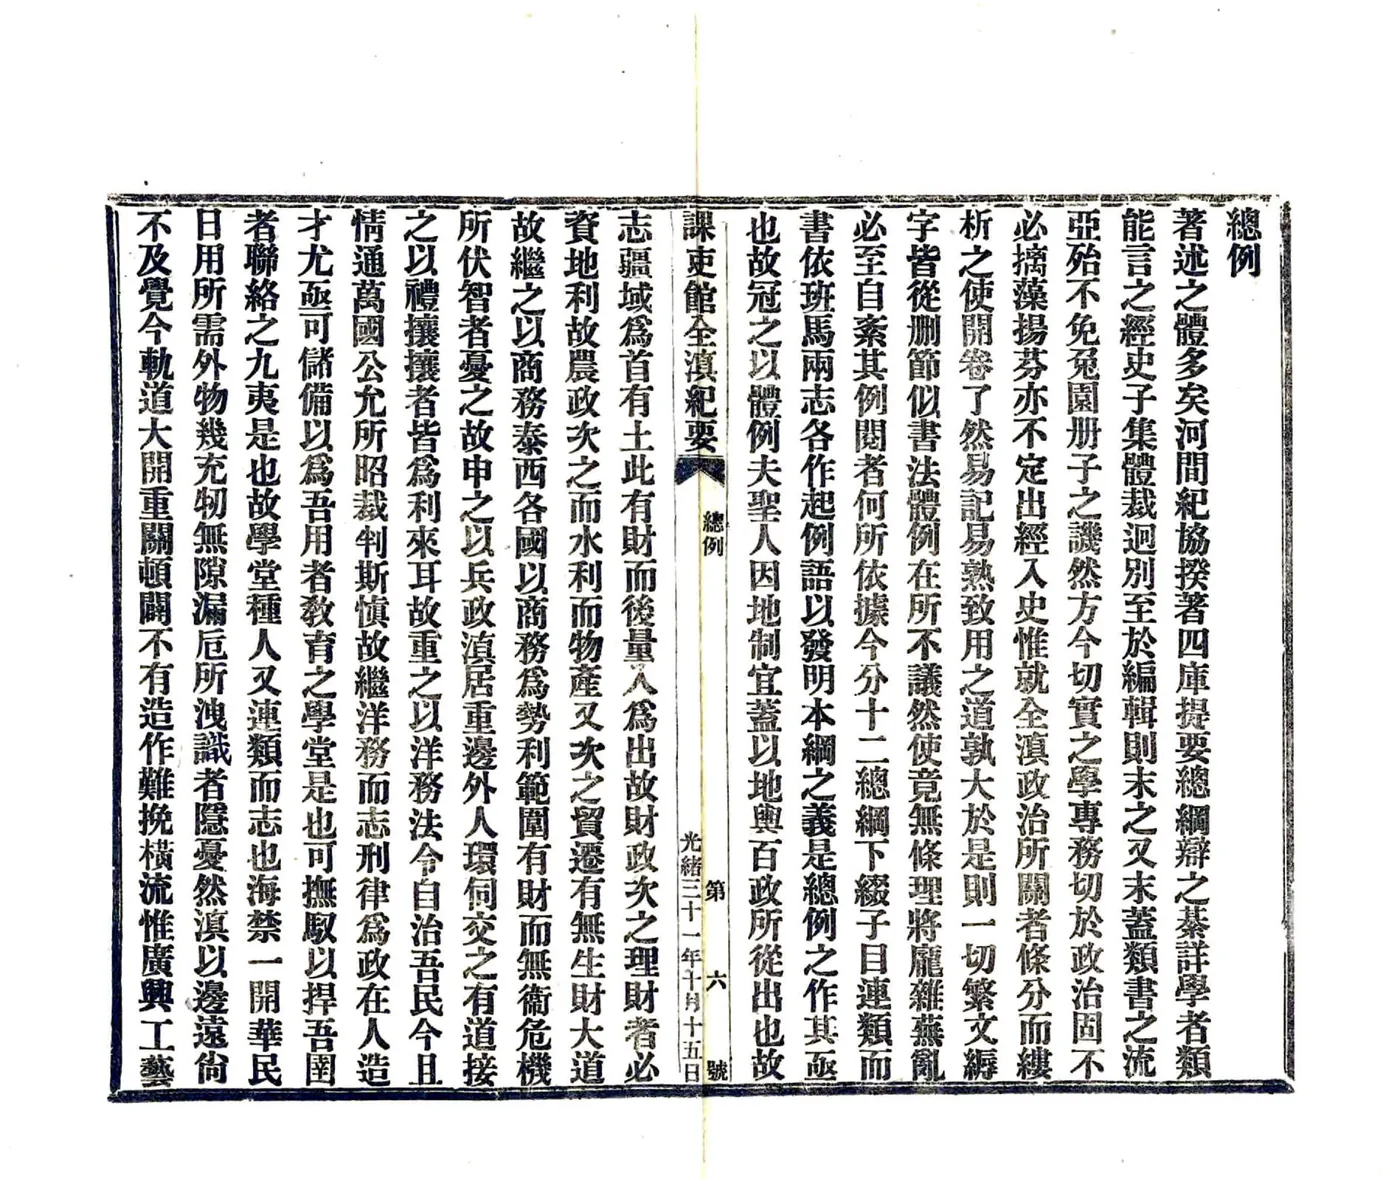 總例
著述之體多矣河間紀協揆著四庫提要總綱辯之綦詳學者類
能言之經史子集體裁迥別至於編輯則末之又末蓋類書之流
亞殆不免兔園册子之譏然方今切實之學專務切於政治固不
必摛藻揚芬亦不定出經入史惟就全滇政治所關者條分而縷
析之使開卷了然易記易熟致用之道孰大於是則一切繁文縟
字皆從删節似書法體例在所不議然使竟無條理將龐雜蕪亂
必至自紊其例閱者何所依據今分十二總綱下綴子目連類而
書依班馬兩志各作起例語以發明本綱之義是總例之作其亟
也故冠之以體例夫聖人因地制宜蓋以地輿百政所從出也故
課吏館全滇紀要
總例
第六號
光緒三十一年十月十五日
志疆域爲首有土此有財而後量入爲出故財政次之理財者必
資地利故農政次之而水利而物產又次之貿遷有無生財大道
故繼之以商務泰西各國以商務爲勢利範圍有財而無衞危機
所伏智者憂之故申之以兵政滇居重邊外人環伺交之有道接
之以禮攘攘者皆爲利來耳故重之以洋務法令自治吾民今且
情通萬國公允所昭裁判斯愼故繼洋務而志刑律爲政在人造
才尤亟可儲備以爲吾用者敎育之學堂是也可撫馭以捍吾圉
者聯絡之九夷是也故學堂種人又連類而志也海禁一開華民
日用所需外物幾充牣無隙漏卮所洩識者隱憂然滇以邊遠尙
不及覺今軌道大開重關頓闢不有造作難挽橫流惟廣興工藝